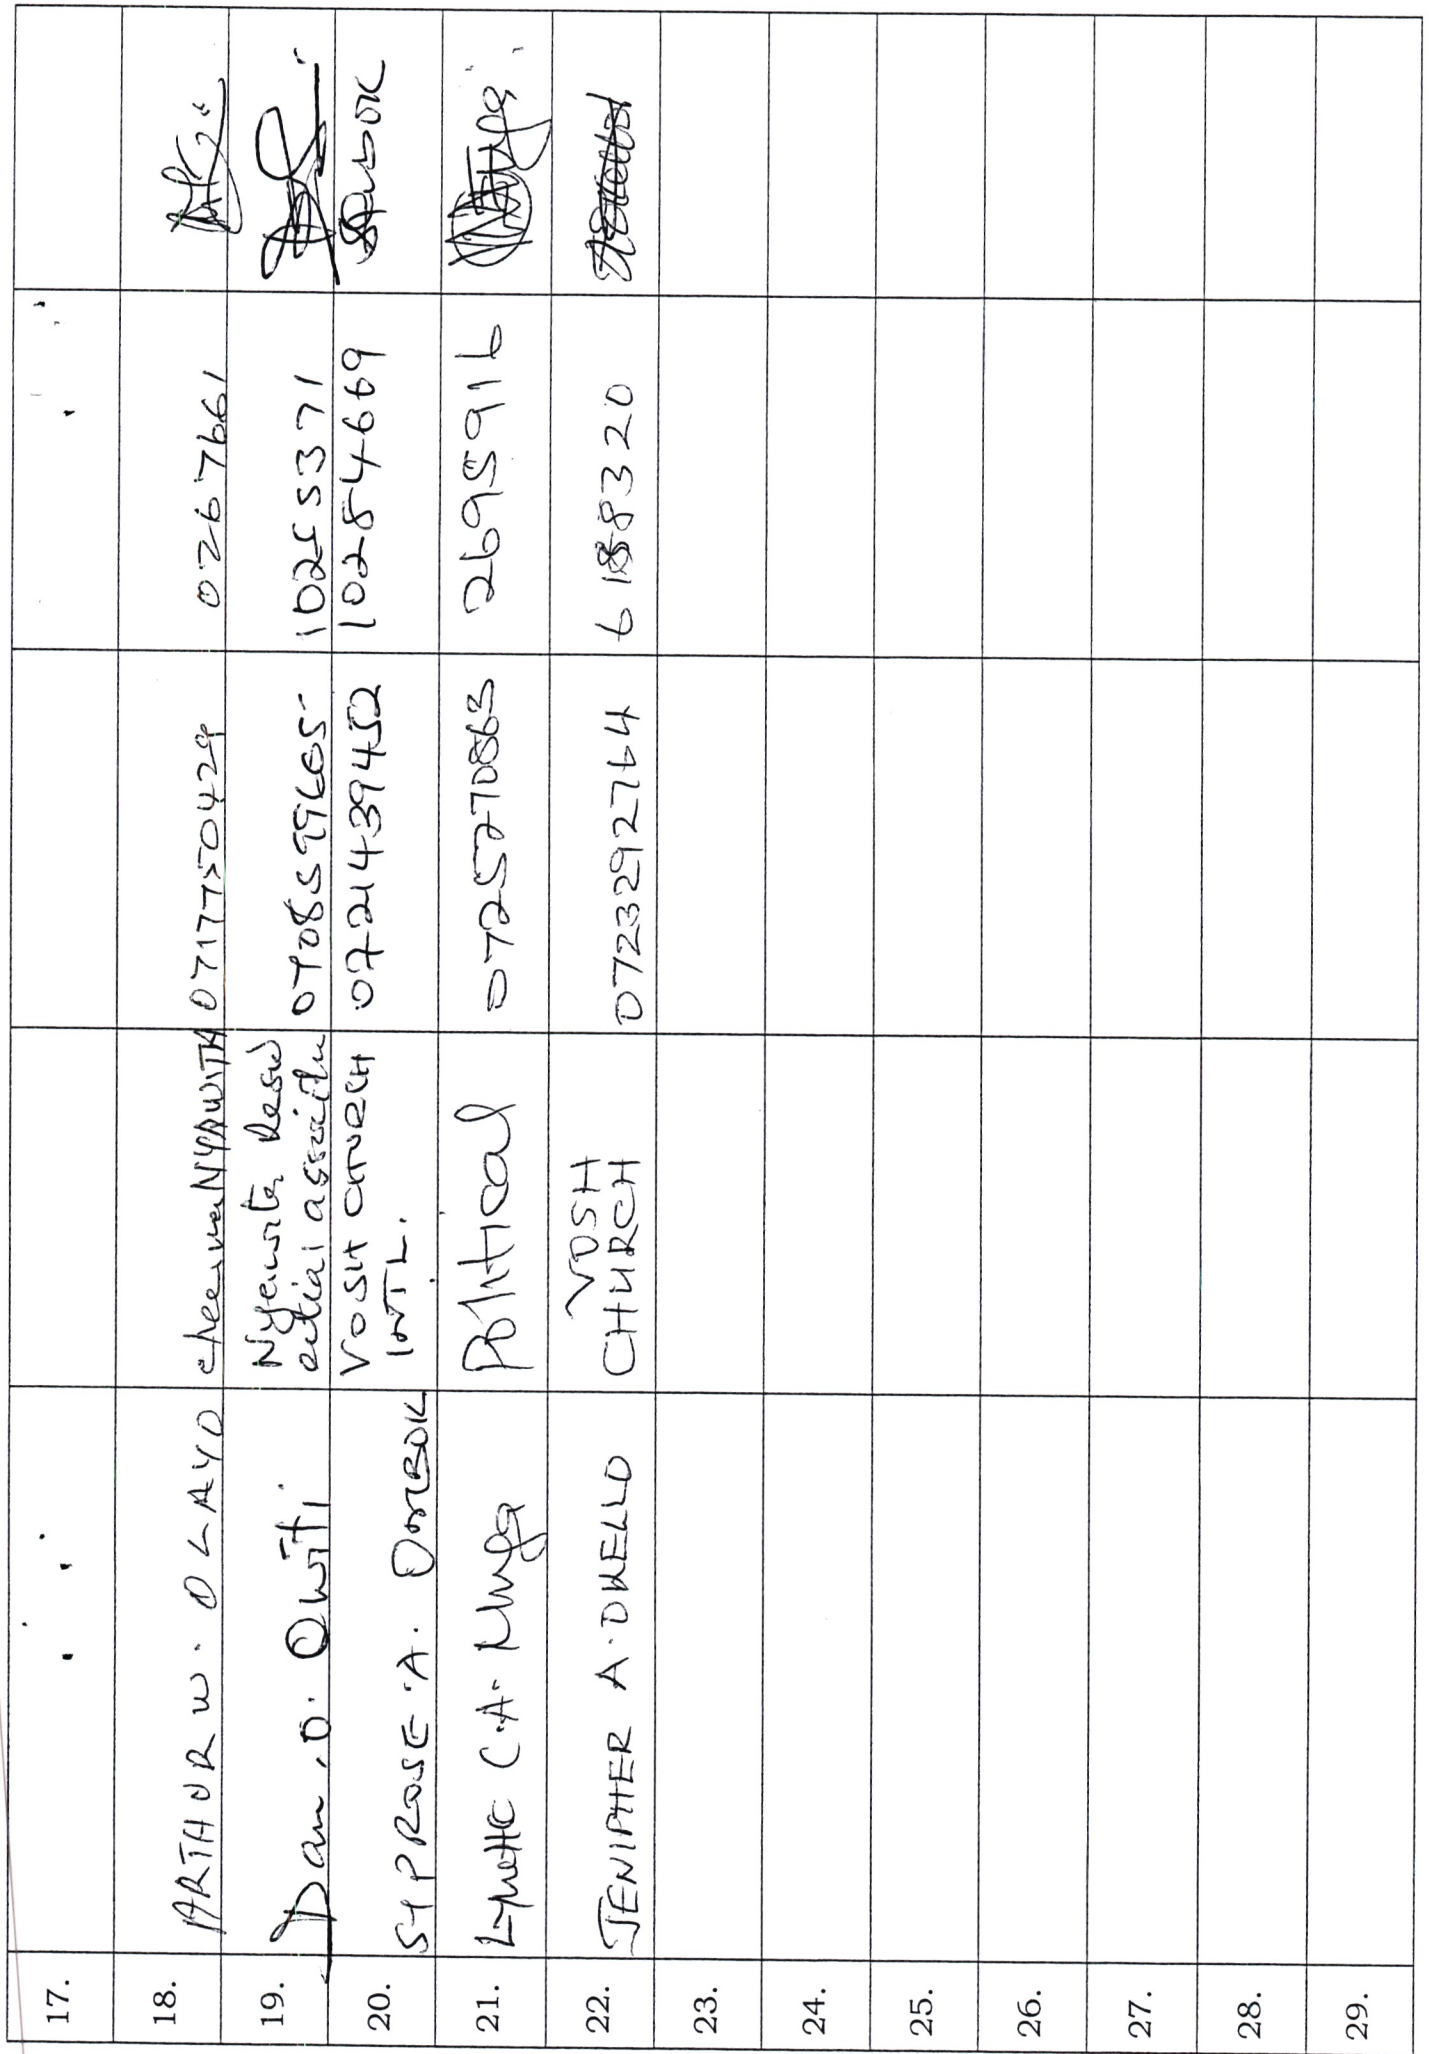 17.
18. ARTHUR W. OLAYO NYAWITA 0717750429 0267661
19. Dan .O. Owiti Nyawita Resid
ential 0708599605 10255371
20. SYPROSE .A. OMBOK VOSH CHURCH
INTL. 0721439452 10284669
21. Lynette C.A. Nunga Political 0725270863 2695916
22. JENIPHER A. OKELLO VOSH
CHURCH 0723292764 6188320
23.
24.
25.
26.
27.
28.
29.